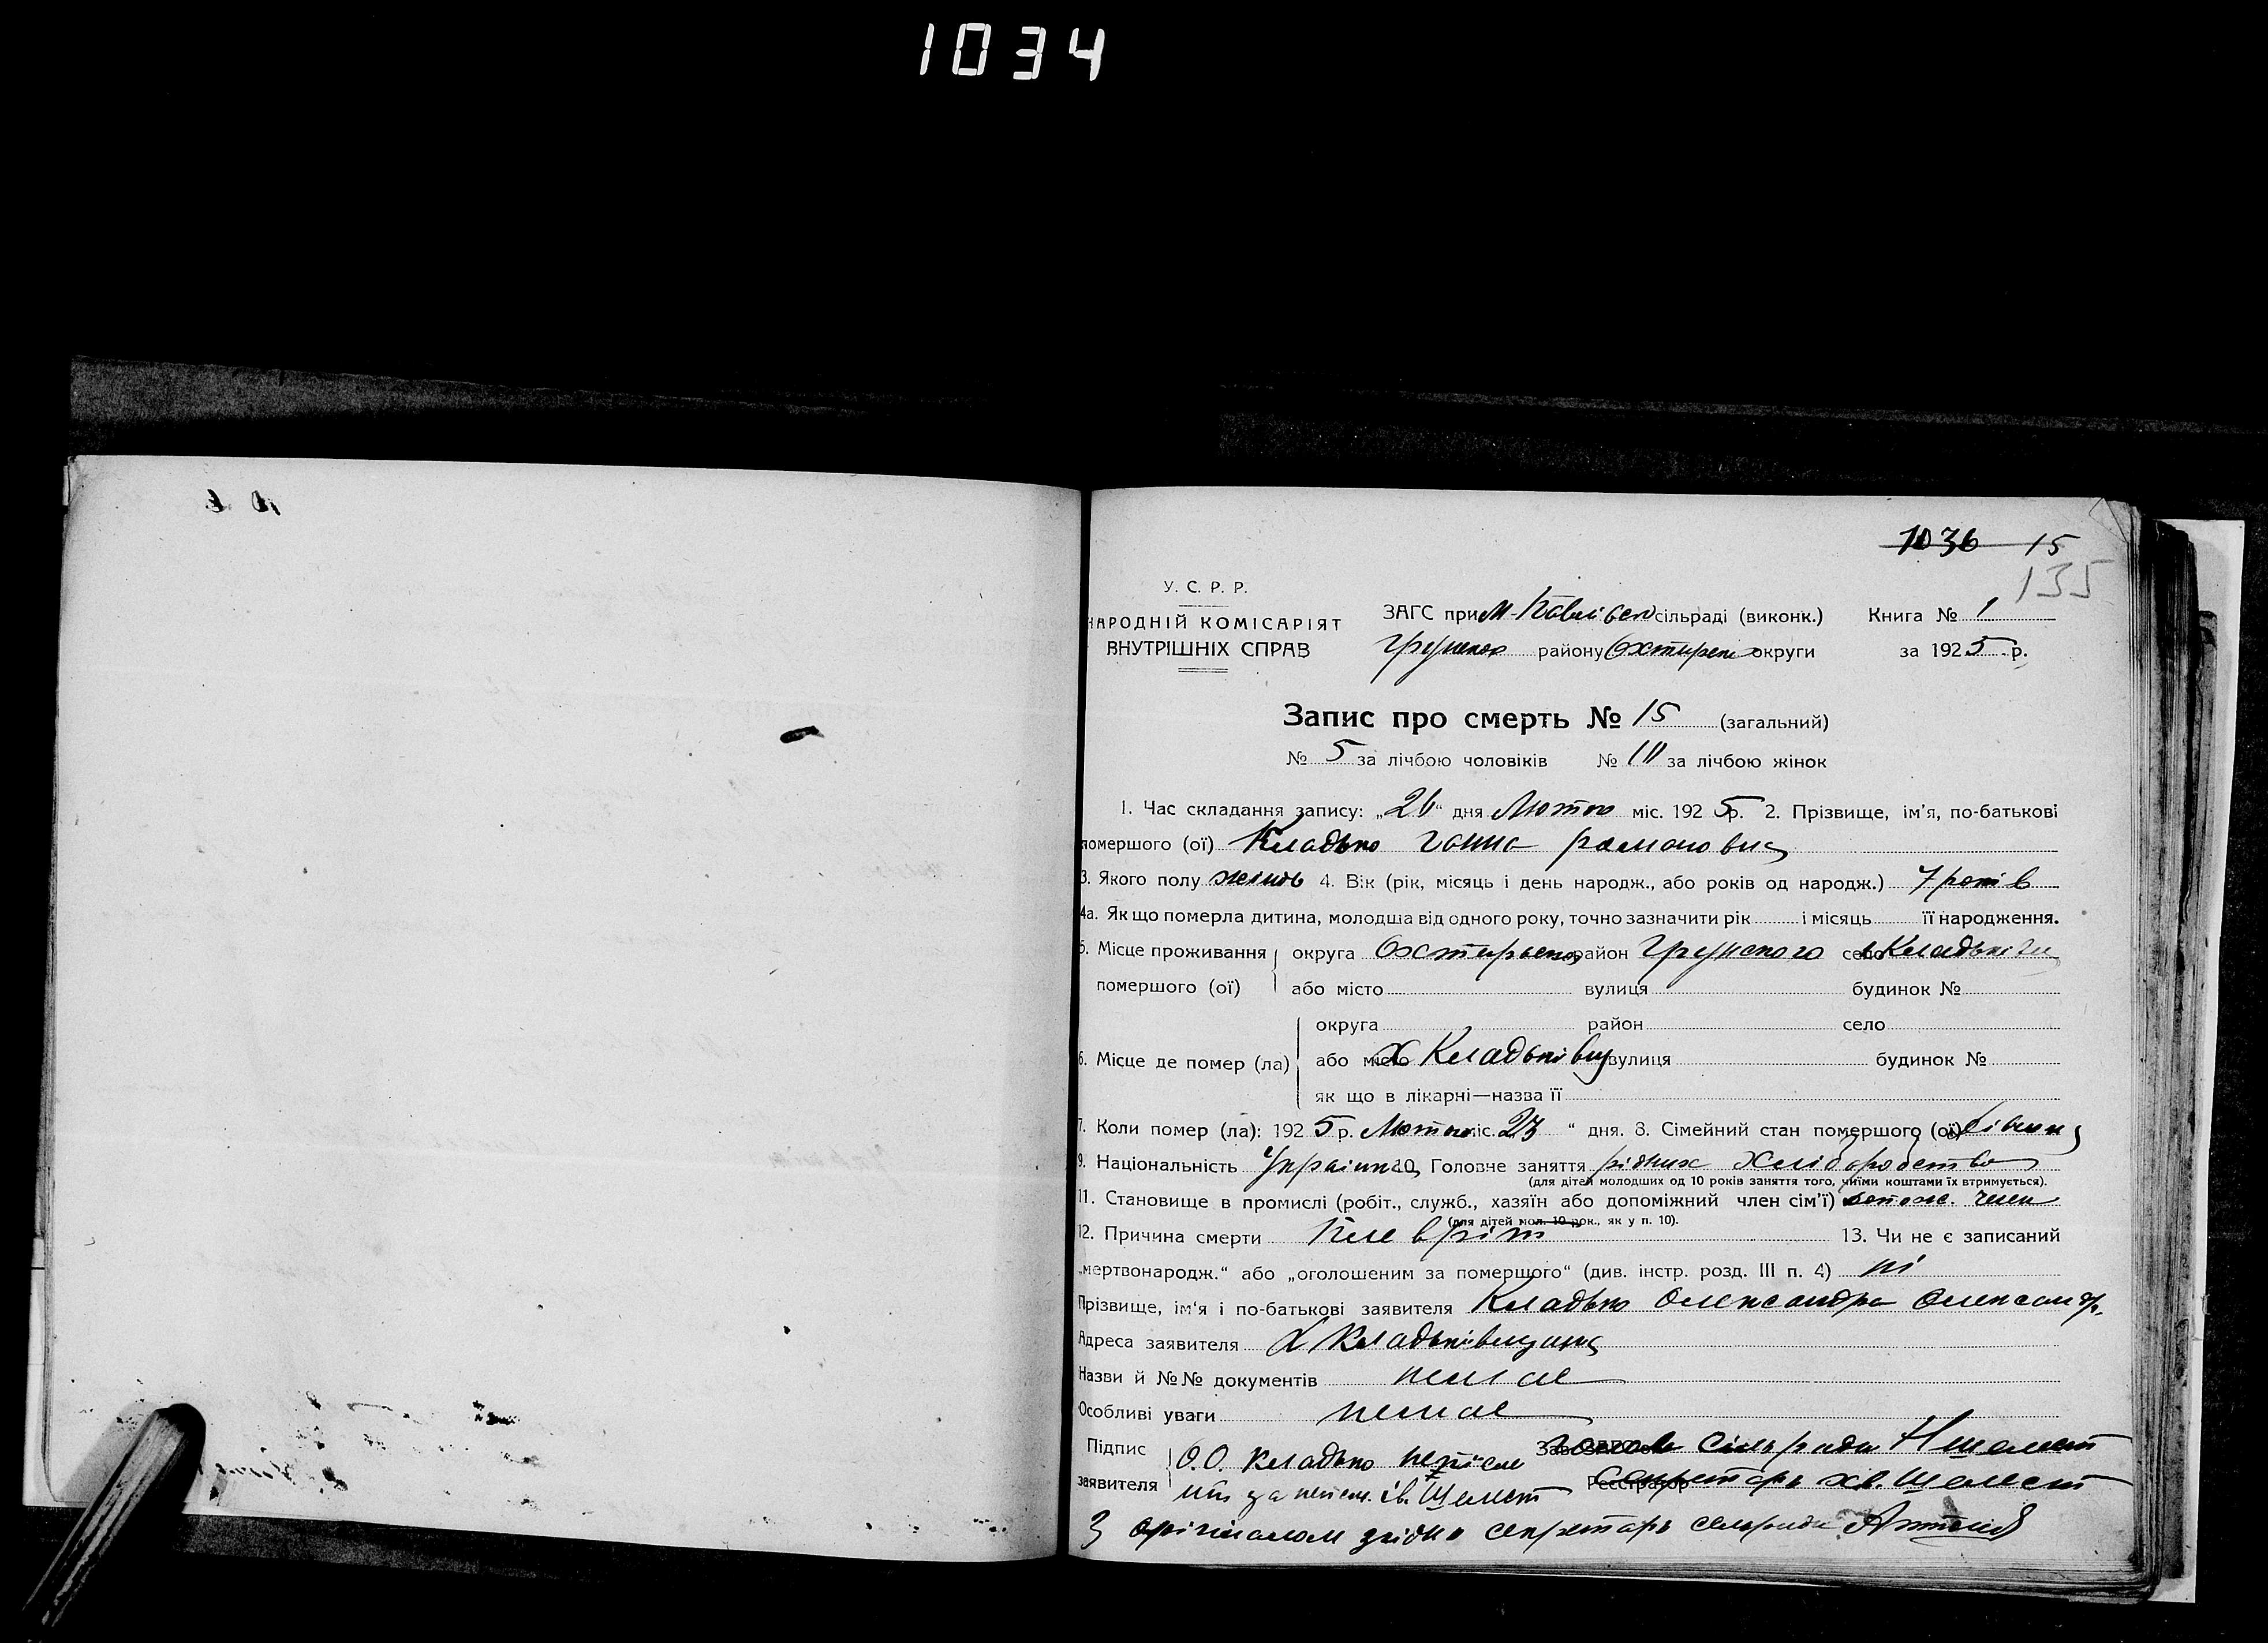 1034
1036 15
135
У. С. Р. Р.
НАРОДНІЙ КОМІСАРІЯТ
ВНУТРІШНІХ СПРАВ
ЗАГС при М-Павлівськ сільраді (виконк.) Книга № 1
Грунськ району Охтирськ округи за 1925 р.
Запис про смерть № 15 (загальний)
№ 5 за лічбою чоловіків № 10 за лічбою жінок
1. Час складання запису: „26“ дня Лютого міс. 1925 р. 2. Прізвище, ім'я, по-батькові
помершого (ої) Кладько Ганна романовна
3. Якого полу жінь 4. Вік (рік, місяць і день народж., або років од народж.) 7 років
4а. Як що померла дитина, молодша від одного року, точно зазначити рік і місяць її народження.
5. Місце проживання округа Охтирсько район Грунського село Кладьківщ
помершого (ої) або місто вулиця будинок №
округа район село
6. Місце де помер (ла) або місто х Кладьківщ вулиця будинок №
як що в лікарні—назва її
7. Коли помер (ла): 1925 р. Лютого міс. 23 “ дня. 8. Сімейний стан помершого (ої) дівиця
9. Національність Українка 10. Головне заняття рідних Хліборобство
(для дітей молодших од 10 років заняття того, чиїми коштами їх втримується).
11. Становище в промислі (робіт., служб., хазяїн або допоміжний член сім'ї) член
(для дітей мол. 10 рок., як у п. 10).
12. Причина смерти Плеврит 13. Чи не є записаний
„мертвонародж.“ або „оголошеним за померщого“ (див. інстр. розд. III п. 4) ні
Прізвище, ім'я і по-батькові заявителя Кладько Олександра Олександр.
Адреса заявителя Х Кладьківщина
Назви й №№ документів немае
Особливі уваги немае
Підпис О.О. Кладько Зав. ЗАГС'ом голова Сільради Н Шелест
заявителя за Шелест Реєстратор Секретарь хв. Шелест
З орігіналом згідно секретарь сельради